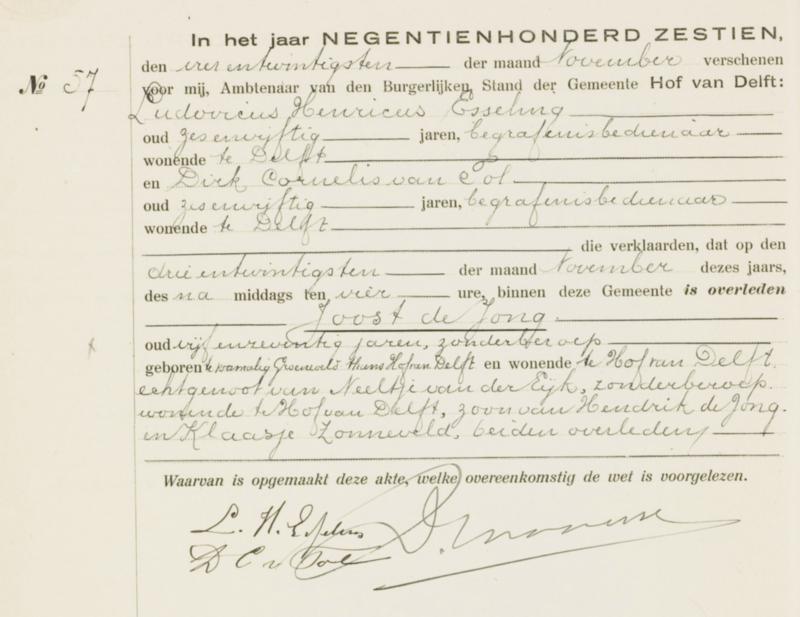 In het jaar NEGENTIENHONDERD ZESTIEN,
den vierentwintigsten der maand November verschenen
No 57
voor mij, Ambtenaar van den Burgerlijken Stand der Gemeente Hof van Delft:
Ludovicus Henricus Esseling
oud zesenvijftig jaren, begrafenisbedienaar
wonende te Delft
en Dirk Cornelis van Tol
oud zesenvijftig jaren, begrafenisbedienaar
wonende te Delft
die verklaarden, dat op den
drieentwintigsten der maand November dezes jaars,
des na middags ten vier ure, binnen deze Gemeente is overleden
Joost de Jong
oud vijfenzeventig jaren, zonder beroep
geboren te voormalig Groeneveld thans Hof van Delft en wonende te Hof van Delft.
echtgenoot van Neeltje van der Eijk, zonder beroep.
wonende te Hof van Delft, zoon van Hendrik de Jong.
en Klaasje Zonneveld, beiden overleden
Waarvan is opgemaakt deze akte, welke overeenkomstig de wet is voorgelezen.
L. H. Esseling
D C v Tol